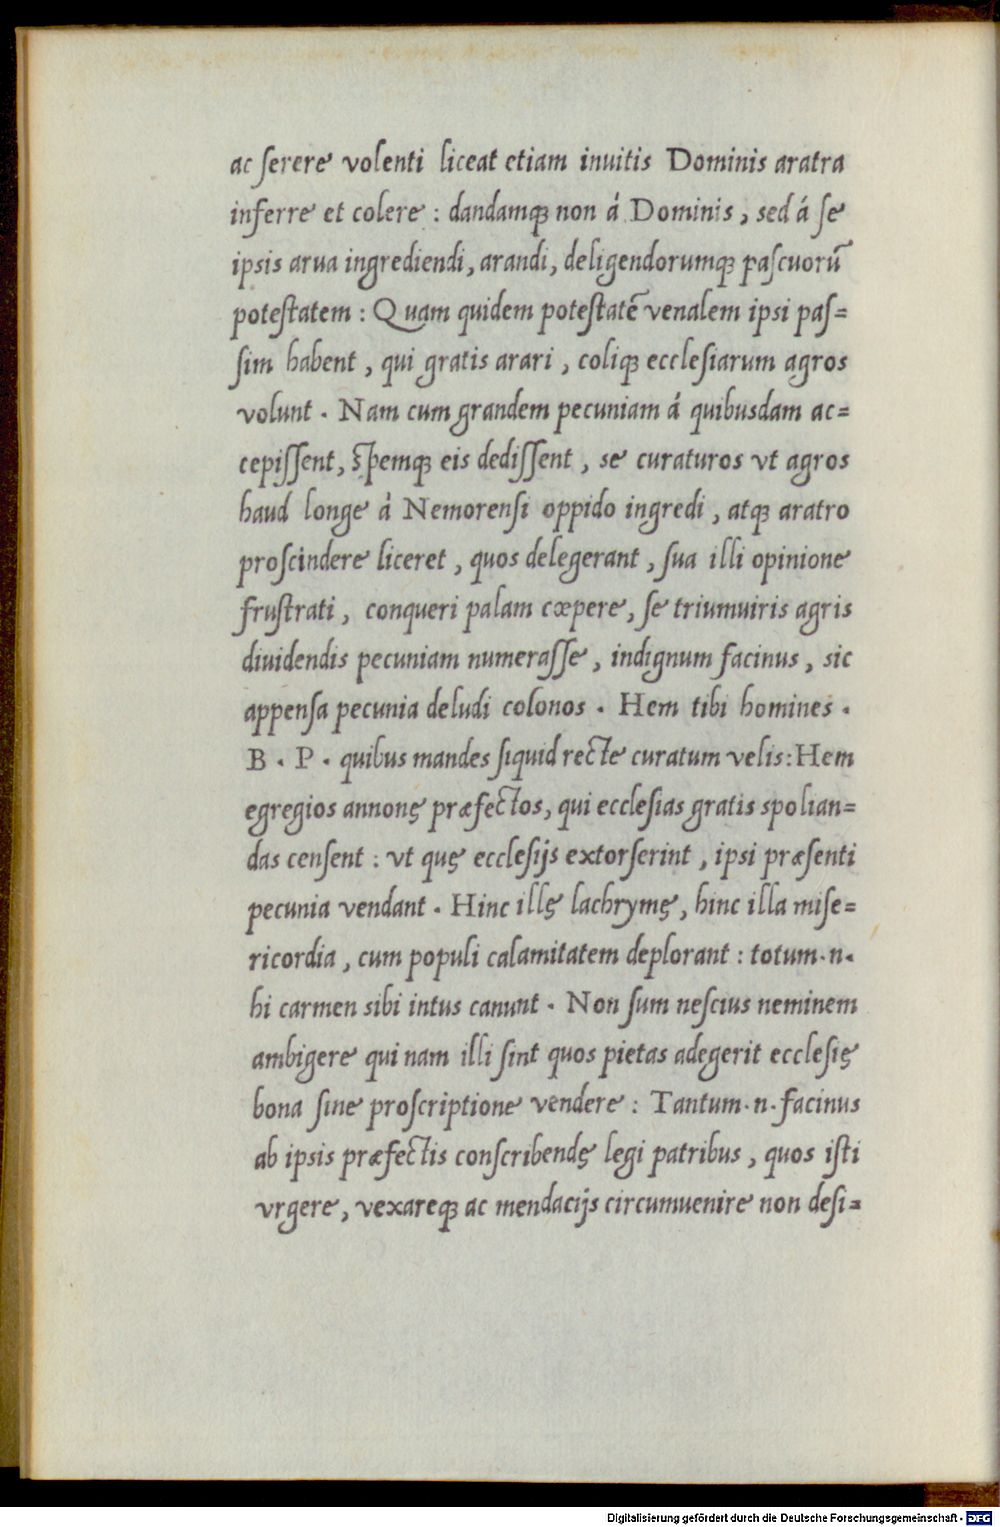 ac ſerere volenti liceat etiam inuitis Dominis aratra
inferre et colere : dandamqꝫ non á Dominis , sed á ſe
ipsis arua ingrediendi, arandi, deligendorumqꝫ paſcuorũ
poteſtatem : Quam quidem poteſtatẽ venalem ipsi paſ=
ſim habent , qui gratis arari , coliqꝫ eccleſiarum agros
volunt . Nam cum grandem pecuniam á quibusdam ac=
cepiſſent, ſpemqꝫ eis dediſſent , se curaturos vt agros
haud longe à Nemorenſi oppido ingredi , atqꝫ aratro
proſcindere liceret , quos delegerant , ſua illi opinione
fruſtrati , conqueri palam cœpere, ſe triumuiris agris
diuidendis pecuniam numeraſſe , indignum facinus , sic
appenſa pecunia deludi colonos . Hem tibi homines .
B . P . quibus mandes ſiquid recte curatum velis:Hem
egregios annonę præfectos, qui eccleſias gratis spolian=
das cenſent : vt quę eccleſijs extorſerint , ipsi præſenti
pecunia vendant . Hinc illę lachrymę, hinc illa miſe=
ricordia , cum populi calamitatem deplorant : totum.n.
hi carmen sibi intus canunt . Non ſum neſcius neminem
ambigere qui nam illi ſint quos pietas adegerit eccleſię
bona ſine proſcriptione vendere : Tantum.n.facinus
ab ipsis præfectis conſcribendę legi patribus , quos iſti
vrgere, vexareqꝫ ac mendacijs circumuenire non deſi=
Digitalisierung gefördert durch die Deutsche Forschungsgemeinschaft - DFG